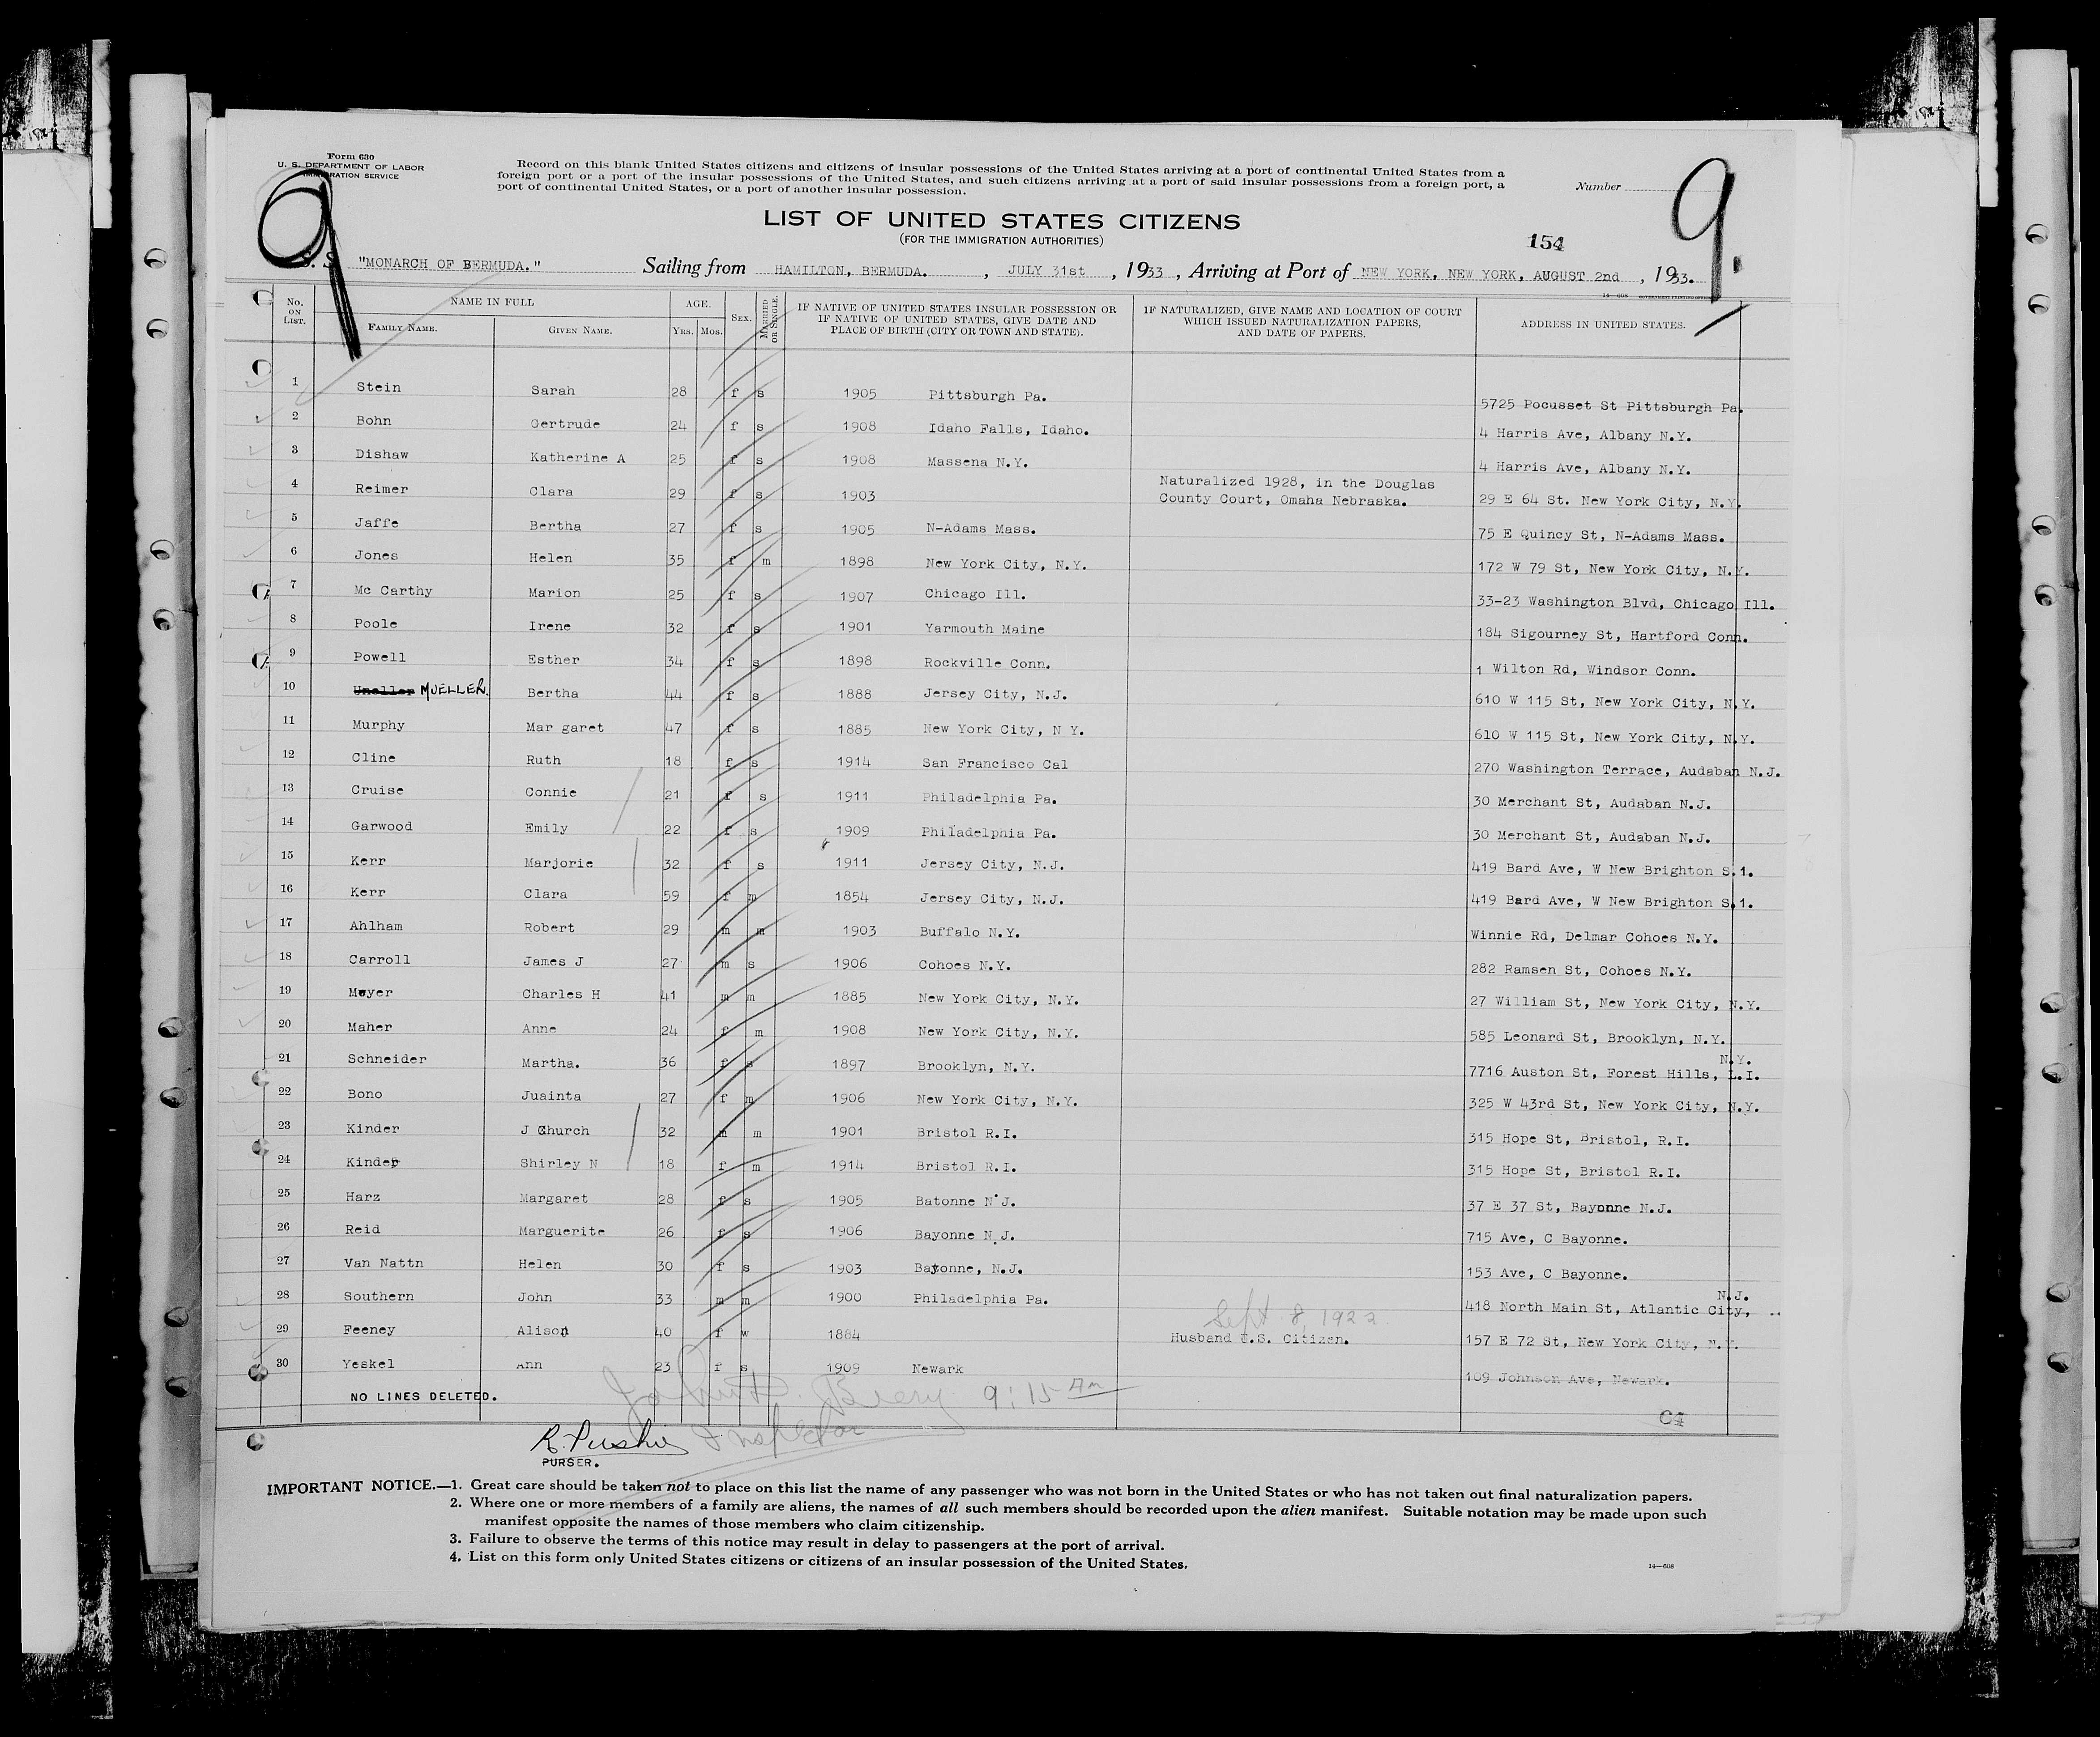 Form 630
U. S. DEPARTMENT OF LABOR
IMMIGRATION SERVICE
Record on this blank United States citizens and citizens of insular possessions of the United States arriving at a port of continental United States from a
foreign port or a port of the insular possessions of the United States, and such citizens arriving at a port of said insular possessions from a foreign port, a
port of continental United States, or a port of another insular possession.
Number
9 9.
LIST OF UNITED STATES CITIZENS
(FOR THE IMMIGRATION AUTHORITIES)
154
S. S. "MONARCH OF BERMUDA." Sailing from HAMILTON, BERMUDA. , JULY 31st , 1933 , Arriving at Port of NEW YORK, NEW YORK, AUGUST 2nd , 1933.
No. ON LIST. NAME IN FULL FAMILY NAME. GIVEN NAME. AGE. YRS. MOS. SEX. MARRIED OR SINGLE. IF NATIVE OF UNITED STATES INSULAR POSSESSION OR IF NATIVE OF UNITED STATES, GIVE DATE AND PLACE OF BIRTH (CITY OR TOWN AND STATE). IF NATURALIZED, GIVE NAME AND LOCATION OF COURT WHICH ISSUED NATURALIZATION PAPERS, AND DATE OF PAPERS. ADDRESS IN UNITED STATES.
1 Stein Sarah 28 f s 1905 Pittsburgh Pa. 5725 Pocusset St Pittsburgh Pa.
2 Bohn Gertrude 24 f s 1908 Idaho Falls, Idaho. 4 Harris Ave, Albany N.Y.
3 Dishaw Katherine A 25 f s 1908 Massena N.Y. 4 Harris Ave, Albany N.Y.
4 Reimer Clara 29 f s 1903 Naturalized 1928, in the Douglas County Court, Omaha Nebraska. 29 E 64 St. New York City, N.Y.
5 Jaffe Bertha 27 f s 1905 N-Adams Mass. 75 E Quincy St, N-Adams Mass.
6 Jones Helen 35 f m 1898 New York City, N.Y. 172 W 79 St, New York City, N.Y.
7 Mc Carthy Marion 25 f s 1907 Chicago Ill. 33-23 Washington Blvd, Chicago Ill.
8 Poole Irene 32 f s 1901 Yarmouth Maine 184 Sigourney St, Hartford Conn.
9 Powell Esther 34 f s 1898 Rockville Conn. 1 Wilton Rd, Windsor Conn.
10 MUELLER. Bertha 44 f s 1888 Jersey City, N.J. 610 W 115 St, New York City, N.Y.
11 Murphy Mar garet 47 f s 1885 New York City, N Y. 610 W 115 St, New York City, N.Y.
12 Cline Ruth 18 f s 1914 San Francisco Cal 270 Washington Terrace, Audaban N.J.
13 Cruise Connie 21 f s 1911 Philadelphia Pa. 30 Merchant St, Audaban N.J.
14 Garwood Emily 22 f s 1909 Philadelphia Pa. 30 Merchant St, Audaban N.J.
15 Kerr Marjorie 32 f s 1911 Jersey City, N.J. 419 Bard Ave, W New Brighton S.1.
16 Kerr Clara 59 f m 1854 Jersey City, N.J. 419 Bard Ave, W New Brighton S.1.
17 Ahlham Robert 29 m m 1903 Buffalo N.Y. Winnie Rd, Delmar Cohoes N.Y.
18 Carroll James J 27 m s 1906 Cohoes N.Y. 282 Ramsen St, Cohoes N.Y.
19 Meyer Charles H 41 m m 1885 New York City, N.Y. 27 William St, New York City, N.Y.
20 Maher Anne 24 f m 1908 New York City, N.Y. 585 Leonard St, Brooklyn, N.Y.
21 Schneider Martha. 36 f s 1897 Brooklyn, N.Y. 7716 Auston St, Forest Hills, L.I. N.Y.
22 Bono Juainta 27 f m 1906 New York City, N.Y. 325 W 43rd St, New York City, N.Y.
23 Kinder J Church 32 m m 1901 Bristol R.I. 315 Hope St, Bristol, R.I.
24 Kinder Shirley N 18 f m 1914 Bristol R.I. 315 Hope St, Bristol R.I.
25 Harz Margaret 28 f s 1905 Batonne N'J. 37 E 37 St, Bayonne N.J.
26 Reid Marguerite 26 f s 1906 Bayonne N.J. 715 Ave, C Bayonne.
27 Van Nattn Helen 30 f s 1903 Bayonne, N.J. 153 Ave, C Bayonne.
28 Southern John 33 m m 1900 Philadelphia Pa. 418 North Main St, Atlantic City, N.J.
29 Feeney Alison 40 f w 1884 Sept 8, 1922. Husband U.S. Citizen. 157 E 72 St, New York City, N.Y.
30 Yeskel Ann 23 f s 1909 Newark 109 Johnson Ave, Newark.
NO LINES DELETED.
9:15 Am
Inspector
C4
PURSER.
IMPORTANT NOTICE.—1. Great care should be taken not to place on this list the name of any passenger who was not born in the United States or who has not taken out final naturalization papers.
2. Where one or more members of a family are aliens, the names of all such members should be recorded upon the alien manifest. Suitable notation may be made upon such
manifest opposite the names of those members who claim citizenship.
3. Failure to observe the terms of this notice may result in delay to passengers at the port of arrival.
4. List on this form only United States citizens or citizens of an insular possession of the United States.
14—608